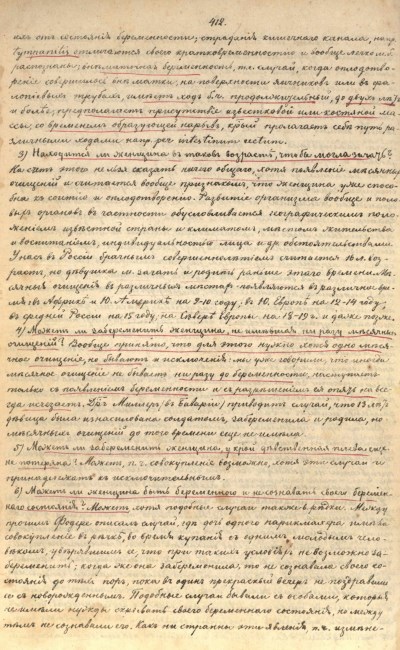 418.
как от состояния беременности; страдания кишечного канала, напр.
tympanitis отличаются своею кратковременностью и вообще легко
распознаны; внематочная беременность, т.е. случай, когда оплодотво-
рение совершилось вне матки, на поверхности яичников или в фа-
лопиевых трубах, имеет ход б.ч. продолжительный, до двух лет
и более, предполагает присутствие известковой или костной мас-
сы; со временем образующей нарыв, который пролагает себе путь раз-
личными ходами напр. per intestinum rectum.
3) Находится ли женщина в таком возрасте, чтобы могла зачать?
На счет этого нельзя сказать ничего общего, хотя появление месячных
очищений и считается вообще признаком, что женщина уже спосо-
бна к соитию и оплодотворению. Развитие организма вообще и поло-
вых органов в частности обусловливается географическим поло-
жением известной страны и климатом, местом жительства
и воспитанием, индивидуальностью лица и др. обстоятельствами.
У нас в России брачным совершеннолетием считается 16 л. воз-
раст, но девушка м. зачать и родить раньше этого времени. Ме-
сячныя очищения в различных местах появляются в различное вре-
мя: в Африке и Ю. Америке на 9-10 году, в Ю. Европе на 12-14 году,
в средней России на 15 году, на севере Европы на 18-19 г. и даже позже.
4) Может ли забеременеть женщина, не имевшая ни разу месячных
очищений? Вообще принято, что для этого нужно хотя одно меся-
чное очищение, но бывают и исключения: мы уже говорили, что иногда
месячное очищение не бывает ни разу до беременности, наступает
только с появлением беременности и с разрешением ея опять на все-
гда исчезает. Др. Миллер (в Баварии) приводит случай, что 13 лет.
девица была изнасилована солдатом, забеременела и родила, но
месячных очищений до того времени еще не имела.
5) Может ли забеременеть женщина, у коей девственная плева еще
не потеряна? Может, п.ч. совокупление возможно, хотя эти случаи и
принадлежат к исключительным.
6) Может ли женщина быть беременною и не сознавать своего беремен-
ного состояния? Может, хотя подобные случаи также редки. Между
прочим Фодере описал случай, где дочь одного парикмахера имела
совокупление в реке, во время купания с одним молодым чело-
веком, уверявшим ее, что при таком условии невозможно за-
беременить; когда же она забеременела, то не сознавала своего со-
стояния до тех пор, пока в один прекрасный вечер не поздравили
ее с новорожденным. Подобные случаи бывали с особами, которыя
не имели нужды скрывать своего беременного состояния, но между
тем не сознавали его. Как ни странны эти явления, п.ч. измене-